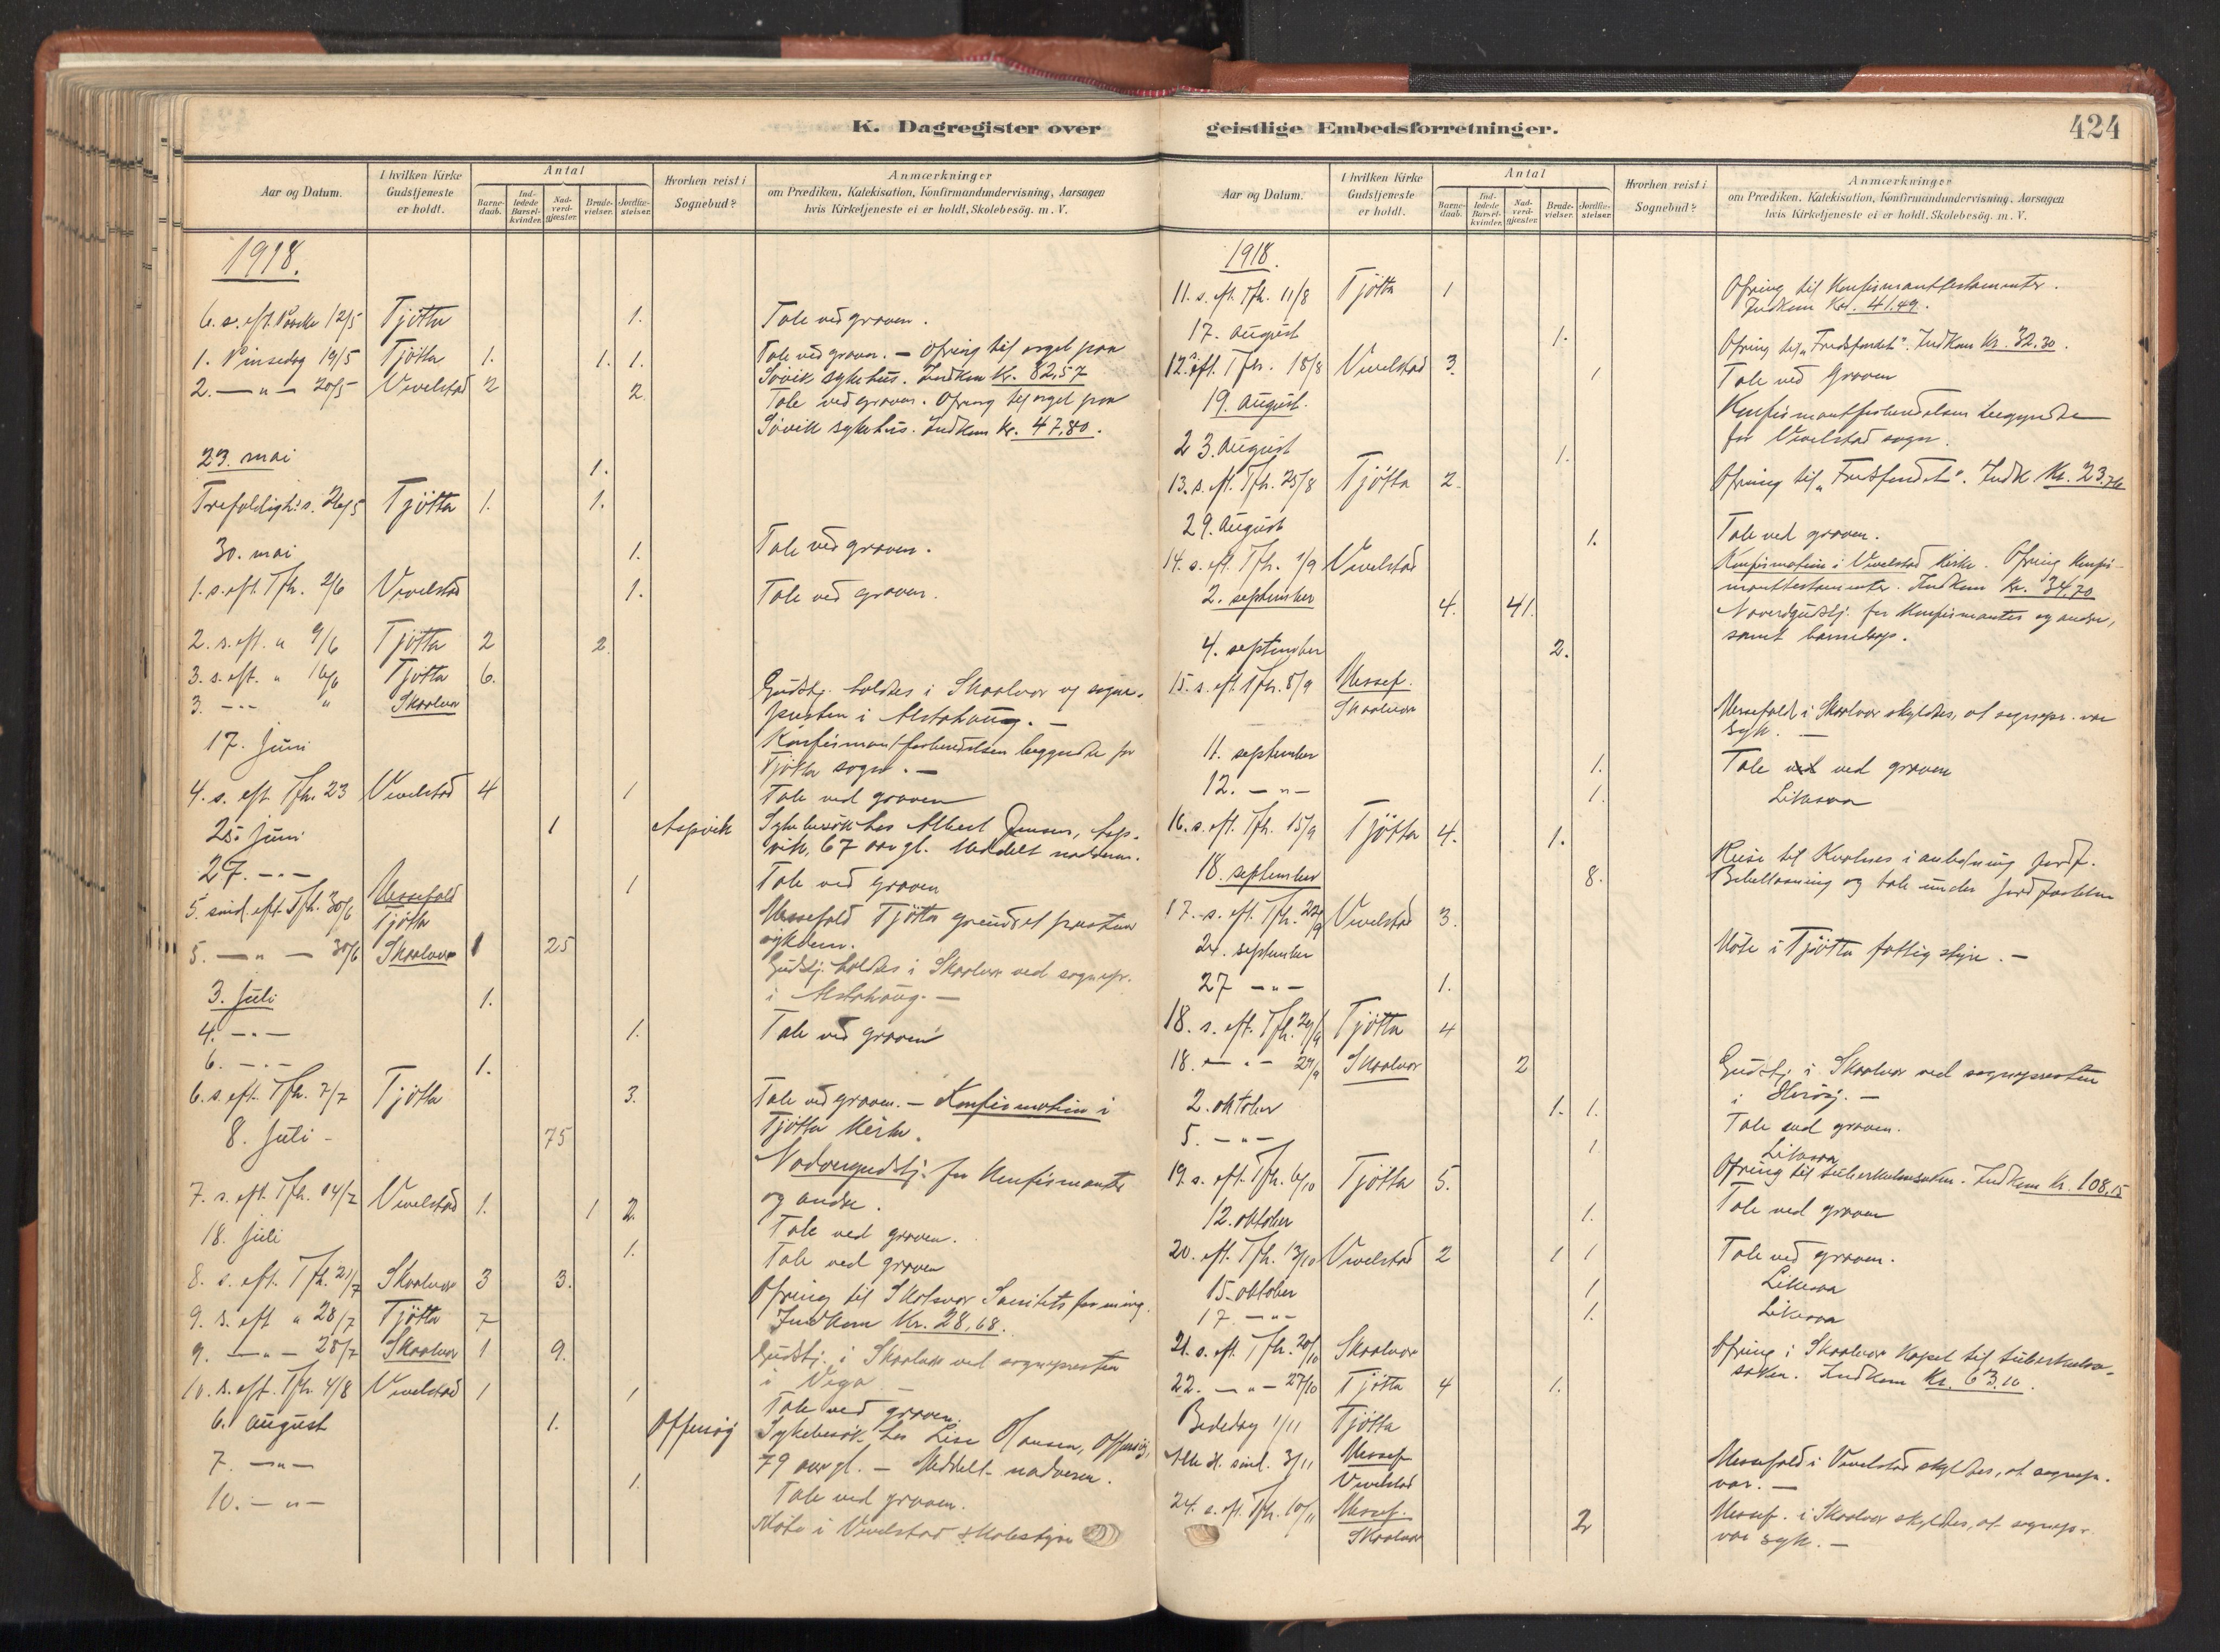 K. Dagregister over
Aar og Datum.
I hvilken Kirke Gudstjeneste er holdt.
Antal
Barne-daab.
Ind-ledede Barsel-kvinder.
Nad-verd-gjester.
Brude-vielser.
Jordfæ-stelser.
Hvorhen reist i Sognebud?
Anmærkninger
om Prædiken, Katekisation, Konfirmandundervisning, Aarsagen
hvis Kirketjeneste ei er holdt, Skolebesøg. m. V.
1918.
6. s. eft. Paaske 12/5 Tjötta 1. Tale ved graven.
1. Pinsedag 19/5 Tjötta 1. 1. 1. Tale ved graven. — Ofring til orgel paa
Sövik sykehus. Indkom Kr. 82,57
2. — " — 20/5 Vevelstad 2 2. Tale ved graven. Ofring til orgel paa
Sövik sykehus. Indkom Kr. 47,80.
23. mai 1.
Trefoldigh. s. 26/5 Tjötta 1. 1.
30. mai 1. Tale ved graven.
1. s. eft. Trfh. 2/6 Vevelstad 1. Tale ved graven.
2. s. eft. " 9/6 Tjötta 2 2.
3. s. eft. " 16/6 Tjötta 6.
3. — " — " Skaalvær Gudstj. holdes i Skaalvær av sogne-
presten i Alstahaug. —
17. Juni Konfirmantforberedelsen begyndte for
Tjötta sogn. —
4. s. eft. Trfh. 23 Vevelstad 4 1 Tale ved graven
25. Juni 1 Aspvik Sykebesök hos Albert Jensen, Asp-
vik, 67 aar gl. Meddelt nadveren.
27. — " — 1 Tale ved graven
5. sönd. eft. Trfh. 30/6 Messefald Tjötta Messefald Tjötta grundet prestens
sykdom.
5. — " — 30/6 Skaalvær 1 25 Gudstj. holdes i Skaalvær ved sognepr.
i Alstahaug. —
3. Juli 1.
4. — " — 1. Tale ved graven
6. — " — 1.
6. s. eft. Trfh. 7/7 Tjötta 3. Tale ved graven. — Konfirmation i
Tjötta kirke.
8. Juli — 75 Nadvergudstj. for Konfirmanter
og andre.
7. s. eft. Trfh. 14/7 Vevelstad 1. 1 2. Tale ved graven.
18. Juli 1. Tale ved graven
8. s. eft. Trfh. 21/7 Skaalvær 3 3. Ofring til Skålvær Sanitetsforening.
Indkom Kr. 28,68.
9. s. eft " 28/7 Tjötta 7
9. — " — 28/7 Skaalvær 1 9. Gudstj. i Skaalvær ved sognepresten
i Vega —
10. s. eft. Trfh. 4/8 Vevelstad 1 1 Tale ved graven.
6. august 1. Offersöy Sykebesök hos Lise Hansen, Offersöy,
79 aar gl. — Meddelt nadveren.
7. — " — 1. Tale ved graven.
10. — " — Möte i Vevelstad skolestyre
geistlige Embedsforretninger.
424
Aar og Datum.
I hvilken Kirke Gudstjeneste er holdt.
Antal
Barne-daab.
Ind-ledede Barsel-kvinder.
Nad-verd-gjester.
Brude-vielser.
Jordfæ-stelser.
Hvorhen reist i Sognebud?
Anmærkninger
om Prædiken, Katekisation, Konfirmandundervisning, Aarsagen
hvis Kirketjeneste ei er holdt, Skolebesøg. m. V.
1918.
11. s. eft. Trfh. 11/8 Tjötta 1 Ofring til Konfirmanttestamenter.
Indkom Kr. 41.49.
17. August 1.
12. s. eft. Trfh. 18/8 Vevelstad 3. 1 Ofring til "Fredsfondet". Indkom Kr. 32.30.
Tale ved Graven
19. August. Konfirmantforberedelsen begyndte
for Vevelstad sogn.
23. August 1.
13. s. eft. Trfh. 25/8 Tjötta 2. Ofring til "Fredsfondet". Indk Kr. 23.
29. August 1. Tale ved graven.
14. s. eft. Trfh. 1/9 Vevelstad Konfirmation i Vevelstad kirke. Ofring konfir-
manttestamenter. Indkom Kr. 34,70
2. september 4. 41. Nadvergudstj. for Konfirmanter og andre,
samt barnedaap.
4. september 2.
15. s. eft. Trfh. 8/9 Messef. Skaalvær Messefald i Skaalvær skyldtes, at sognepr. var
syk. —
11. september 1. Tale ved ved graven
12. — " — 1. Likesaa
16. s. eft. Trfh. 15/9 Tjötta 4. 1.
18. september 8. Reise til Kvalnes i anledning jordf.
Bibellæsning og tale under jordfæstelsen
17. s. eft. Trfh. 22/9 Vevelstad 3.
24. september Möte i Tjötta fattigstyre. —
27 — " — 1.
18. s. eft. Trfh. 29/9 Tjötta 4
18. — " — 29/9 Skaalvær 2 Gudstj. i Skaalvær ved sognepresten
i Heröy. —
2. oktober 1. 1. Tale ved graven.
5. — " — 1 Likesaa
19. s. eft. Trfh. 6/10 Tjötta 5. Ofring til tuberkulosesaken. Indkom Kr. 108,15
12. oktober 1. Tale ved graven
20. eft. Trfh. 13/10 Vevelstad 2 1 1 Tale ved graven.
15. oktober 1 Likesaa
17. — " — 1. Likesaa
21. s. eft. Trfh. 20/10 Skaalvær Ofring i Skaalvær Kapel til tuberkulose-
saken. Indkom Kr. 63.10.
22. — " — 27/10 Tjötta 4 1.
Bededag 1/11 Tjötta
Alle H. sönd. 3/11 Messef Vevelstad Messefald i Vevelstad skyldtes, at sognepr.
var. —
24. s. eft. Trfh. 10/11 Messef. Skaalvær 2 Messef. i Skaalvær skyldtes, at sognepr.
var syk. —